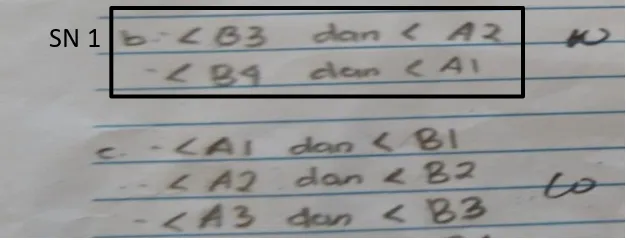 SN 1 b. - < B3 dan < A2
- < B4 dan < A1
c. - < A1 dan < B1
- < A2 dan < B2
- < A3 dan < B3